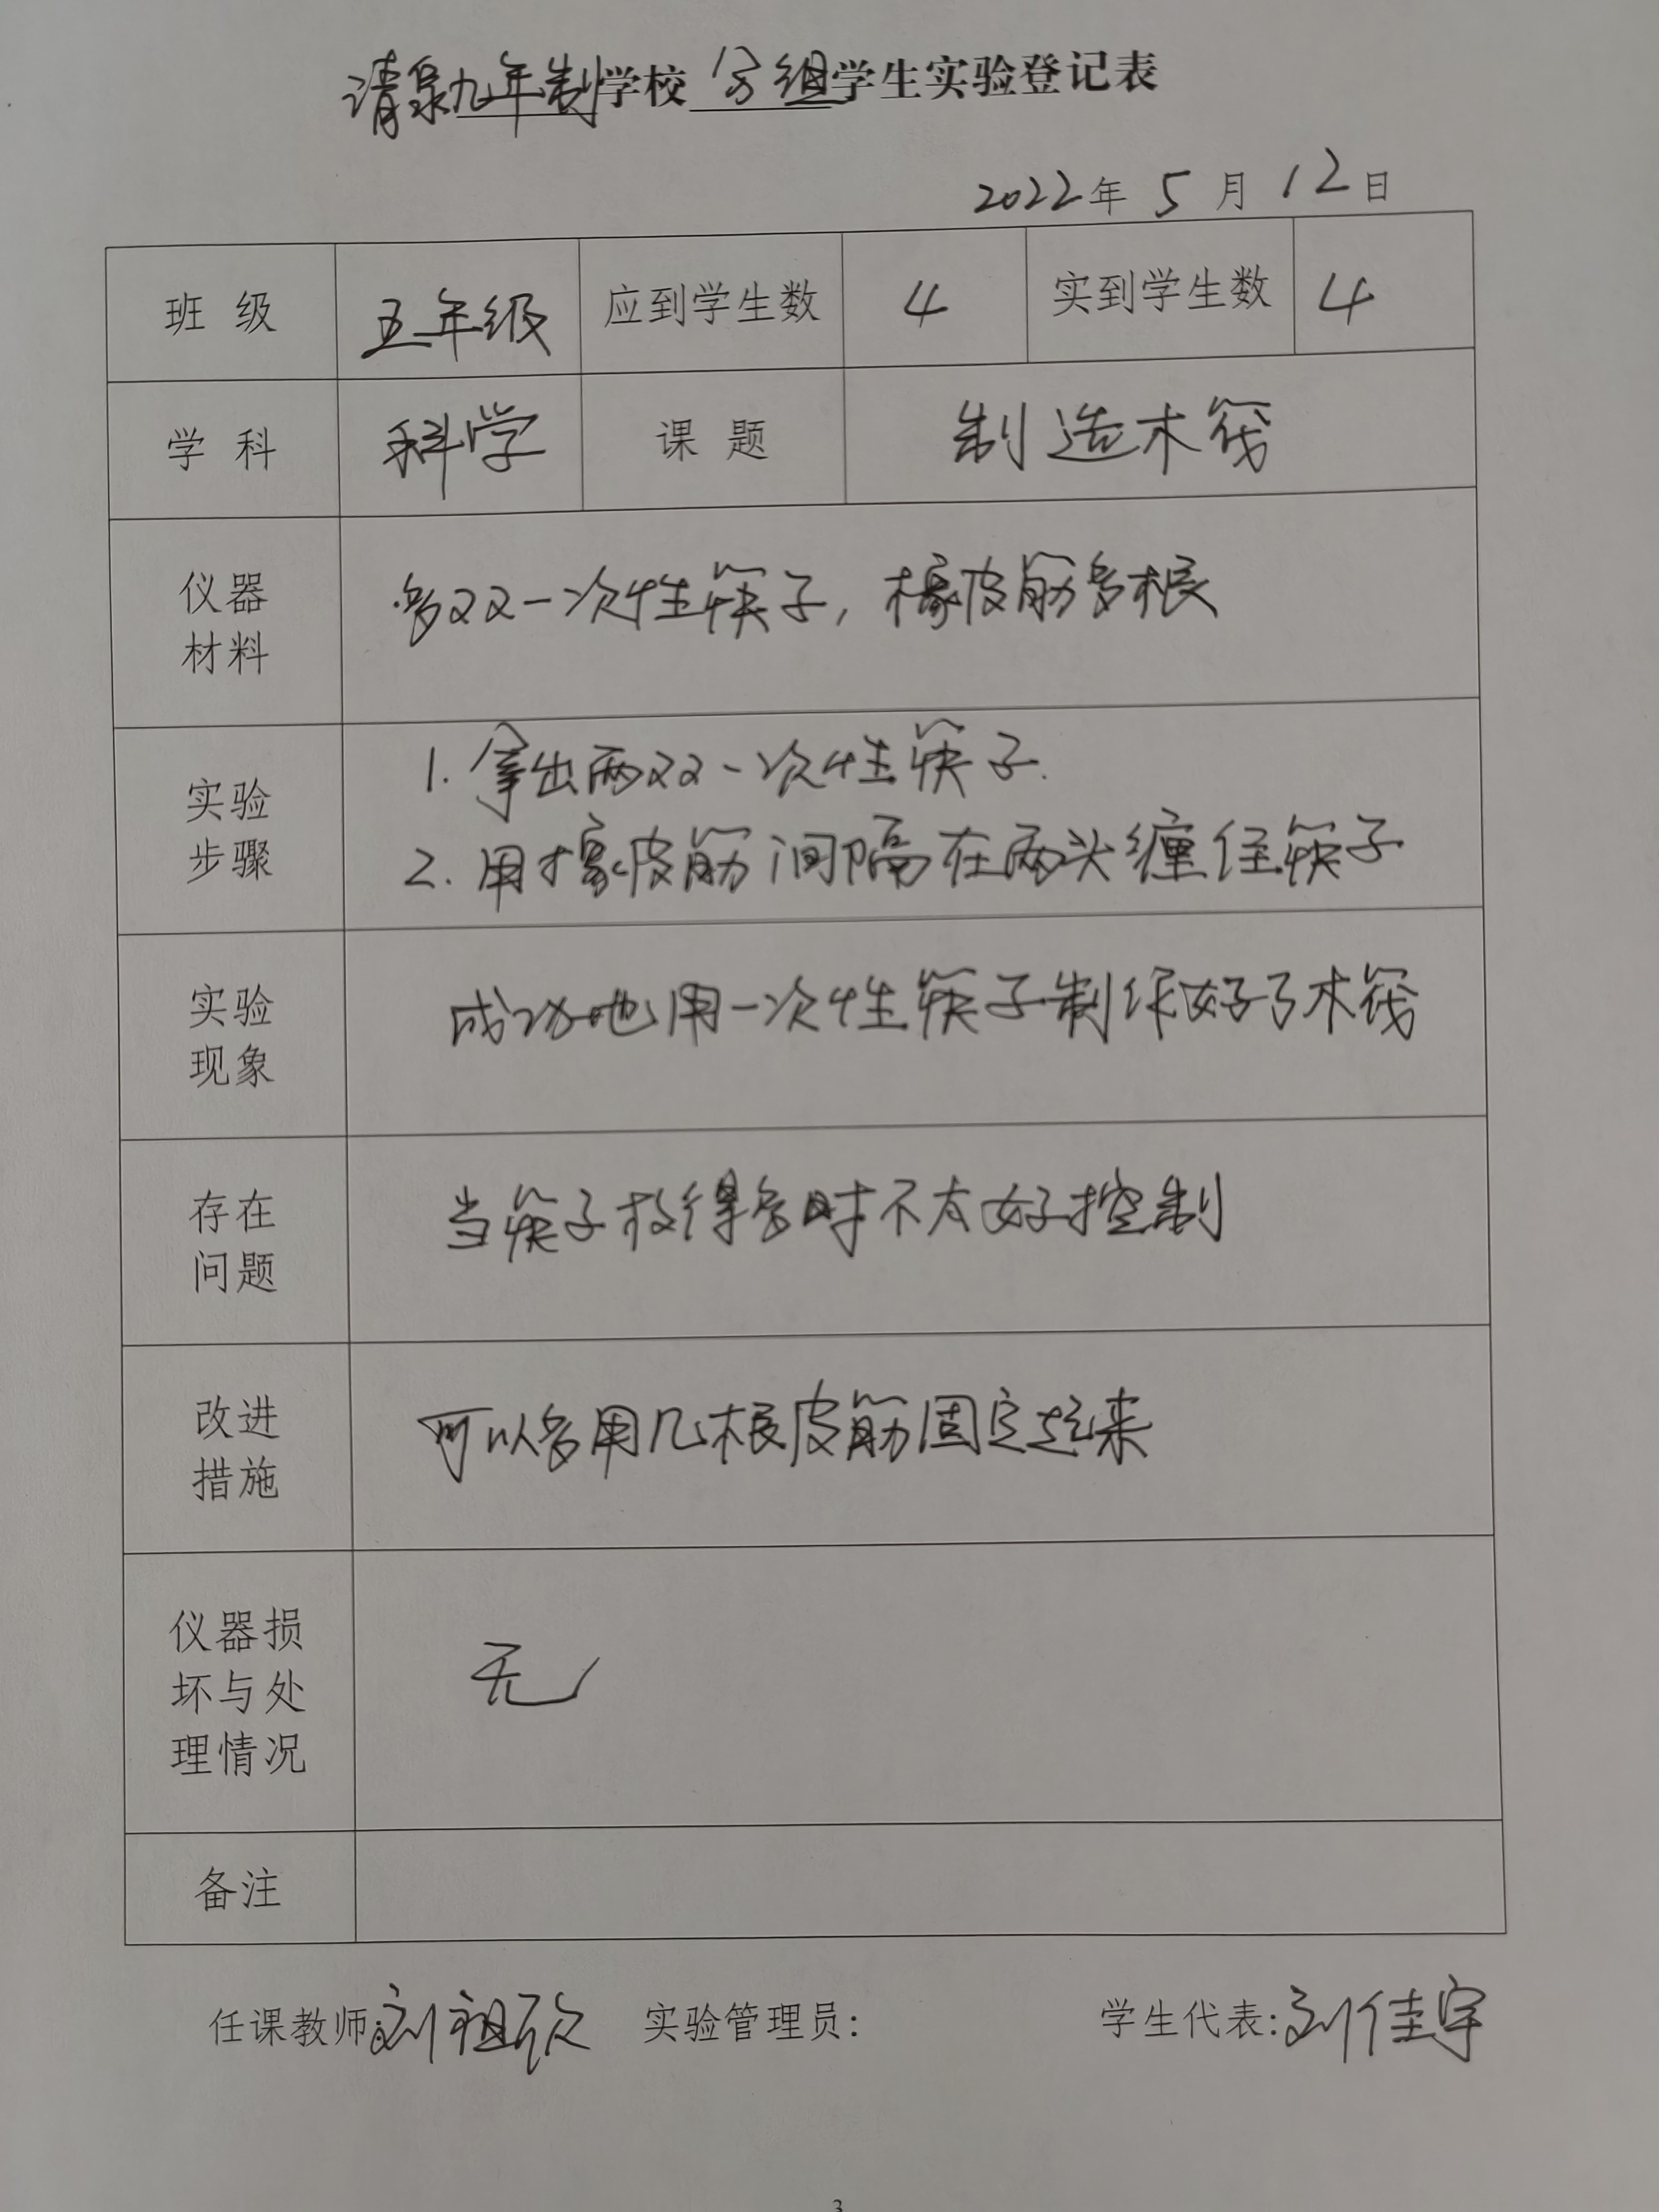 清泉九年制学校 分组学生实验登记表
2022年 5 月 12日
班 级 五年级 应到学生数 4 实到学生数 4
学 科 科学 课 题 制造木筏
仪器
材料
多双一次性筷子,橡皮筋多根
实验
步骤
1. 拿出两双一次性筷子.
2. 用橡皮筋间隔在两头缠住筷子
实验
现象
成功地用一次性筷子制作好了木筏
存在
问题
当筷子放得多时不太好控制
改进
措施
可以多用几根皮筋固定起来
仪器损
坏与处
理情况
无
备注
任课教师:刘祖欣 实验管理员: 学生代表:刘佳宇
3